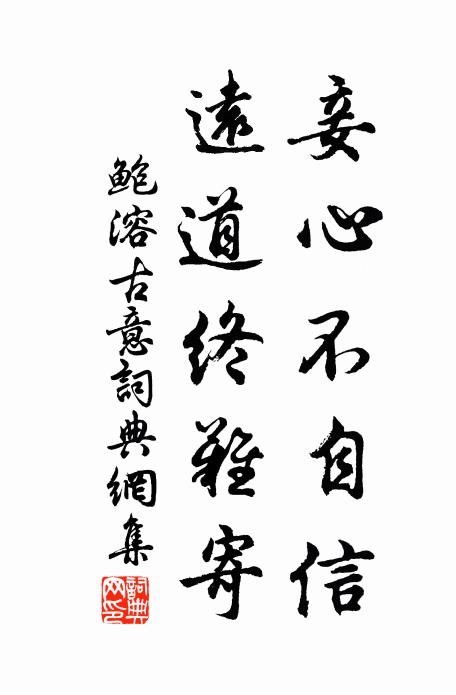 妾心不自信
遠道終難寄
鲍溶古意詞典網集
詞典网印